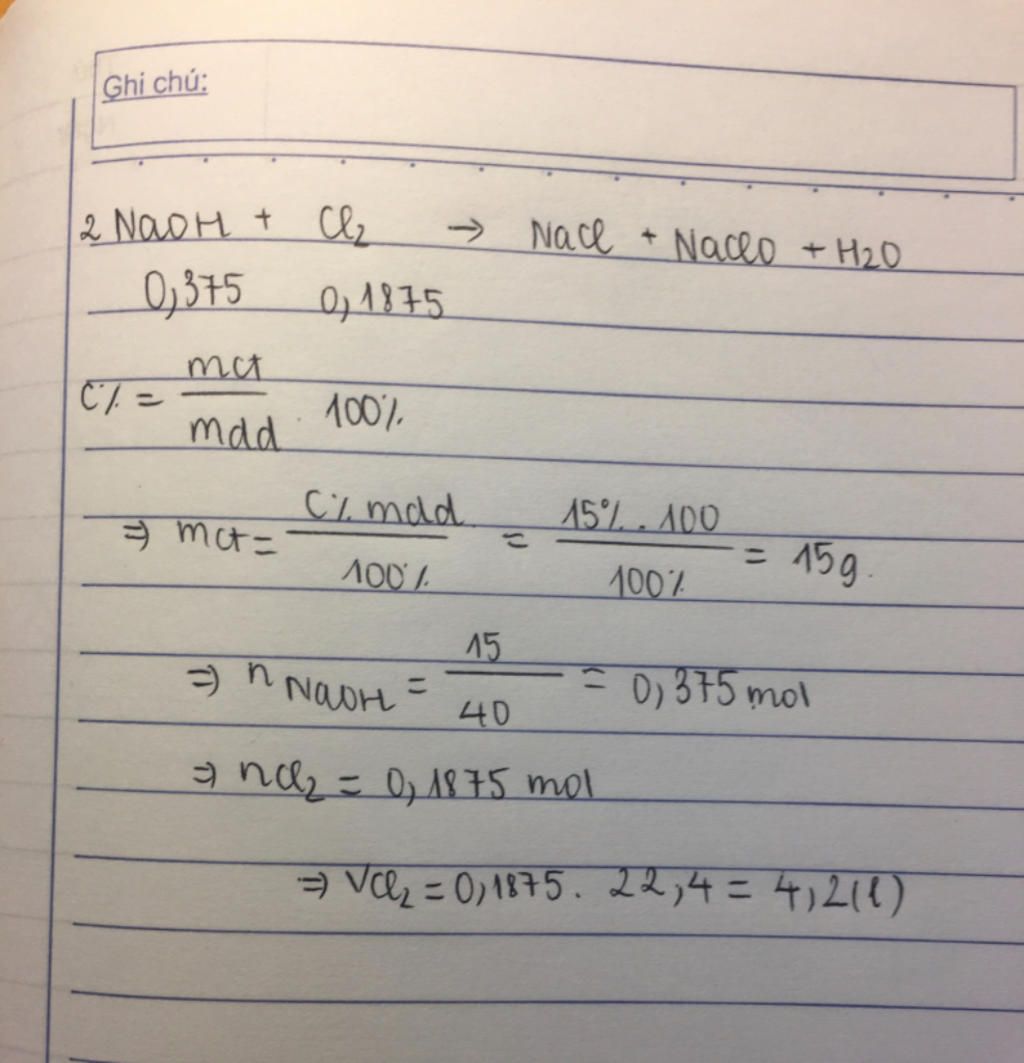 Ghi chú:
2 NaOH + Cl2 → NaCl + NaClO + H2O
0,375 0,1875
C% = mct / mdd . 100%
⇒ mct = C% mdd / 100% = 15% . 100 / 100% = 15g.
⇒ n NaOH = 15 / 40 = 0,375 mol
⇒ nCl2 = 0,1875 mol
⇒ VCl2 = 0,1875 . 22,4 = 4,2(l)